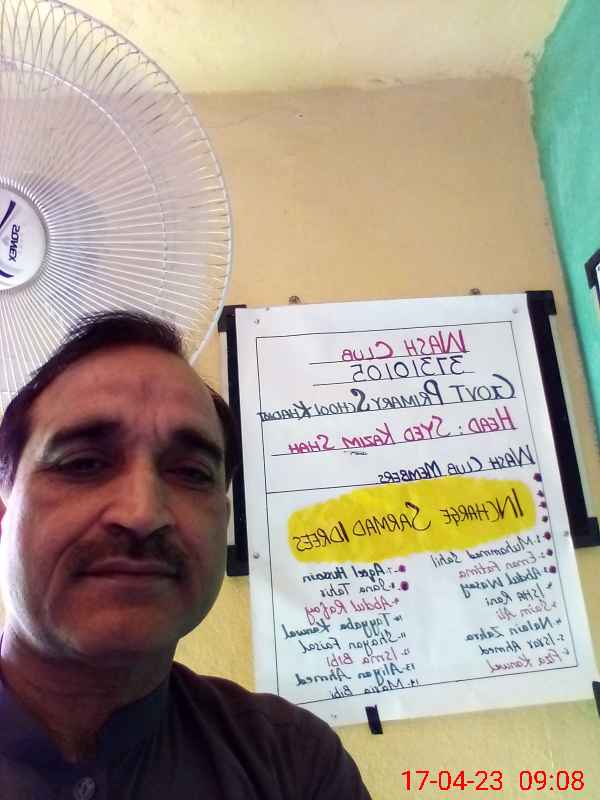 SOMEX
WASH CLUB
37310105
GOVT PRIMARY SCHOOL
HEAD: SYED KAZIM SHAH
WASH CLUB MEMBERS
INCHARGE SARMAD IDREES
Muhammad Sahil
Eman Fatima
Abdul Wasay
Isha Rani
Saim Ali
Nalain Zahra
Ahmed
Fiza Kanwal
Aqeel Hussain
Sana Tahir
Abdul Rafay
10. Tayyaba Kanwal
11. Shayan Faisal
12. Isma Bibi
13. Aliyan Ahmed
14. Maria Bibi
17-04-23 09:08